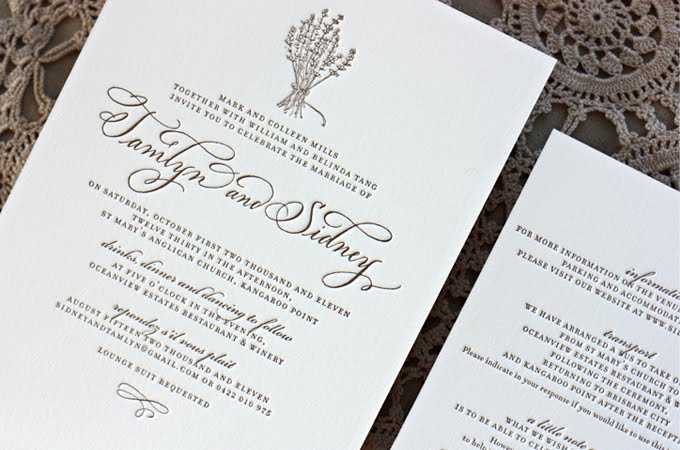 MARK AND COLLEEN MILLS
TOGETHER WITH WILLIAM AND BELINDA TANG
INVITE YOU TO CELEBRATE THE MARRIAGE OF
Tamlyn and Sidney
ON SATURDAY, OCTOBER FIRST TWO THOUSAND AND ELEVEN
TWELVE THIRTY IN THE AFTERNOON,
ST MARY'S ANGLICAN CHURCH, KANGAROO POINT
drinks, dinner and dancing to follow
AT FIVE O'CLOCK IN THE EVENING,
OCEANVIEW ESTATES RESTAURANT & WINERY
repondez s'il vous plait
AUGUST FIFTEEN TWO THOUSAND AND ELEVEN
SIDNEYANDTAMLYN@GMAIL.COM OR 0422 010 975
LOUNGE SUIT REQUESTED
information
FOR MORE INFORMATION ON THE VENUE
PARKING AND ACCOMMODA
PLEASE VISIT OUR WEBSITE AT WWW.SI
transport
WE HAVE ARRANGED A BUS TO TAKE G
FROM ST MARY'S CHURCH T
OCEANVIEW ESTATES RESTAURANT &
FOLLOWING THE CEREMONY,
RETURNING TO BRISBANE
AND KANGAROO POINT AFTER THE RECEPT
Please indicate in your response if you would like to use this
a little note
WHAT WE WISH
IS TO BE ABLE TO CELEBRATE